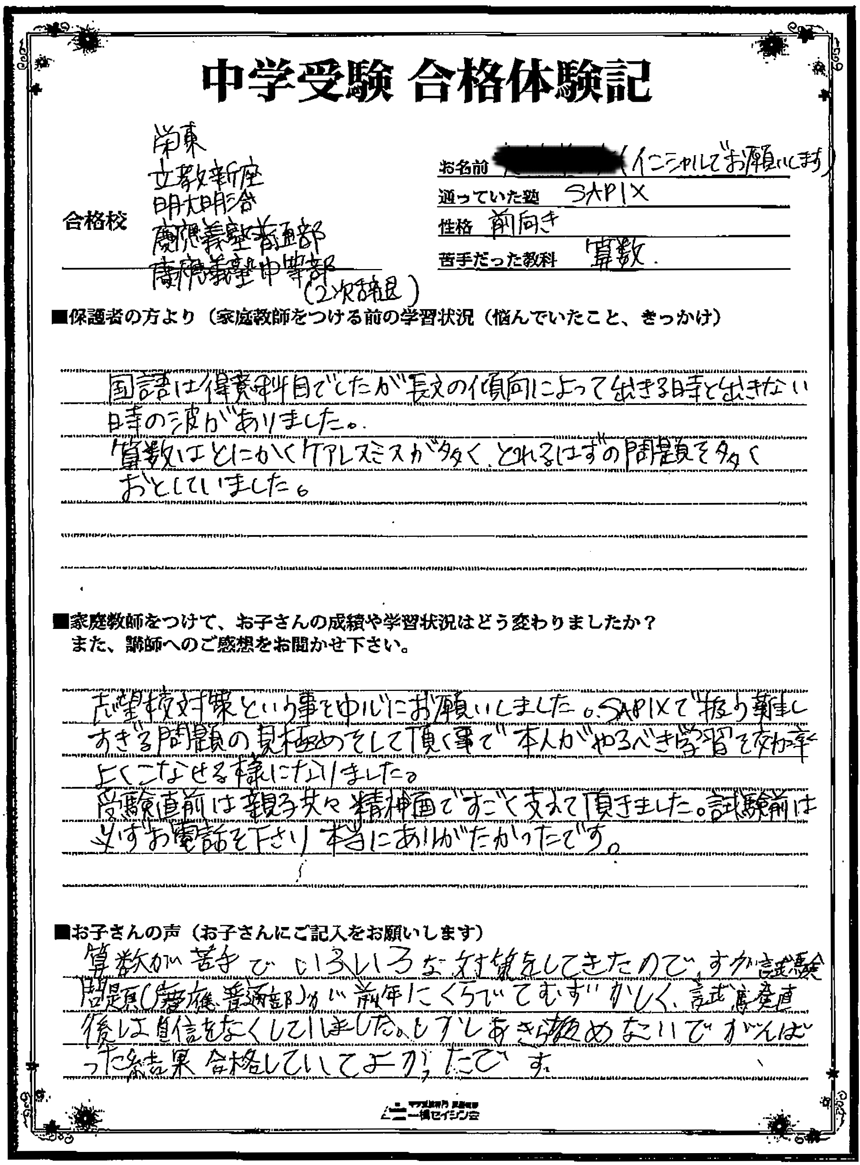 中学受験 合格体験記
合格校
栄東
立教新座
明大明治
慶應義塾普通部
慶應義塾中等部
(2次辞退)
お名前 (イニシャルでお願いします)
通っていた塾 SAPIX
性格 前向き
苦手だった教科 算数.
■保護者の方より（家庭教師をつける前の学習状況（悩んでいたこと、きっかけ）
国語は得意科目でしたが長文の傾向によって出きる時と出きない
時の波がありました。
算数はとにかくケアレスミスが多く、とれるはずの問題を多く
おとしていました。
■家庭教師をつけて、お子さんの成績や学習状況はどう変わりましたか？
また、講師へのご感想をお聞かせ下さい。
志望校対策という事を中心にお願いしました。SAPIXで扱う難し
すぎる問題の見極めをして頂く事で本人がやるべき学習を効率
よくこなせる様になりました。
受験直前は親子共々精神面ですごく支えて頂きました。試験前は
必ずお電話を下さり本当にありがたかったです。
■お子さんの声（お子さんにご記入をお願いします）
算数が苦手でいろいろな対策をしてきたのですが試験
問題(慶應普通部)が前年にくらべてむずかしく、試験直
後は自信をなくしていました。しかしあきらめないでがんば
った結果合格していてよかったです。
一橋セイシン会